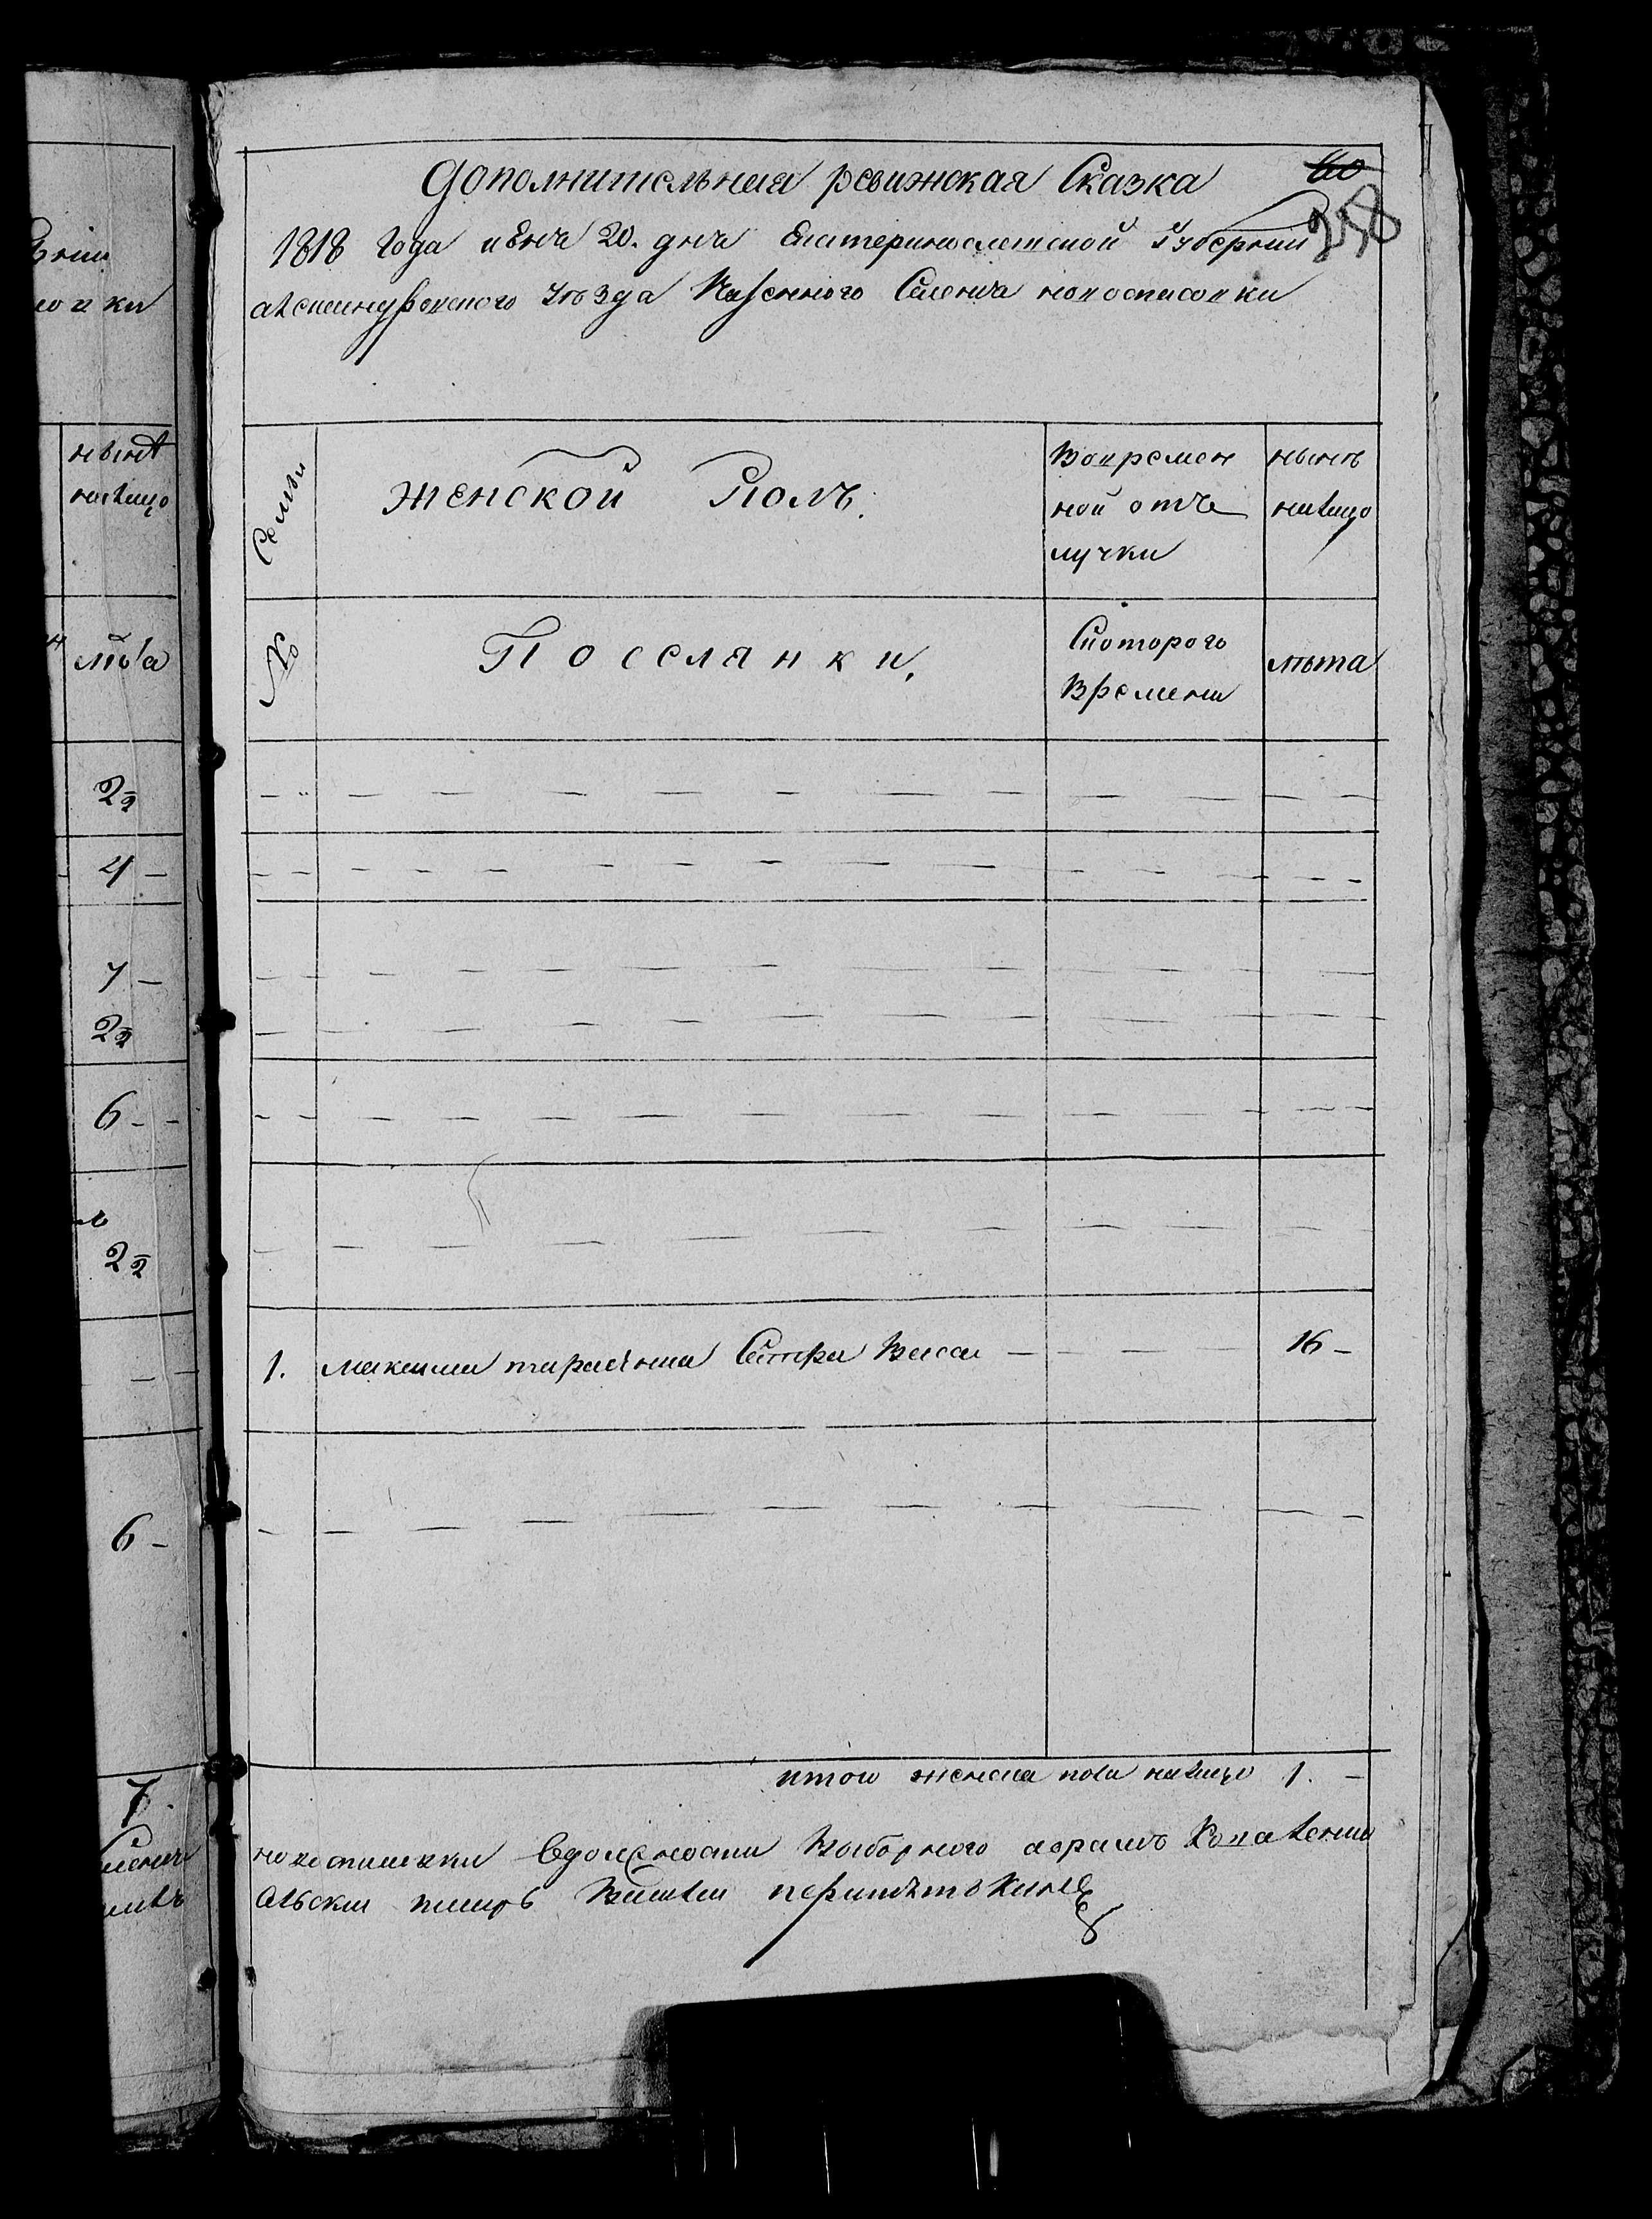 Дополнительная ревижская Сказка
60
358
1818 Года июня 20. дня Екатеринославской Губернии
александровского уѣзда Казенного Селения новоспасовки
Семьи
женской Полъ.
Вовремен
ной отъ
лучки
нынѣ
налицо
№
Поселянки,
Скоторого
Времени
лѣта
1. Максима тарасова Сестра Васса — — — 16 —
итого женска пола налицо 1. —
новоспасовки Вдолжности Выборного
нынѣ
налицо
лѣта
2 1/2
4 —
7 —
2 1/2
6 - -
2 1/2
6 -
7.